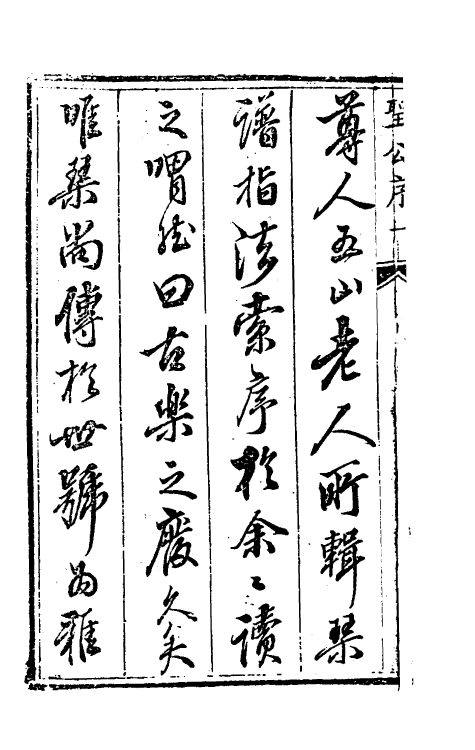 聖公序一
尊人五山老人所輯琴
譜指法索序於余〻讀
之喟然曰古樂之廢久矣
唯琴尚傳於世號為雅